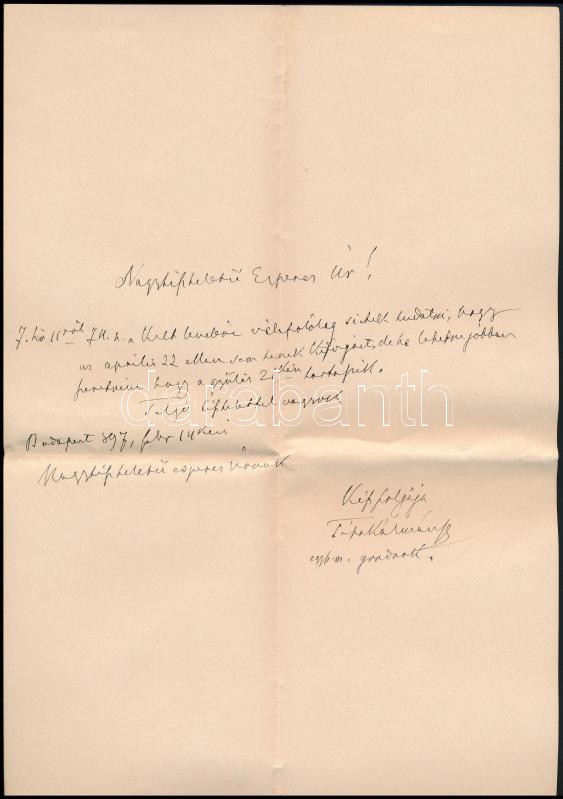 Nagytiszteletü Esperes Úr!
F. hó 11 ről 74. sz. a kelt levelére válaszolólag sietek tudatni, hogy
az április 22 ellen sem teszek kifogást, de ha lehetne jobban
szeretném hogy a gyülés 2 kán tartassék.
Teljes tisztelettel vagyok
Budapest 897, febr 14 kén
Nagytiszteletü esperes Úrnak
kész szolgája
egyh.
gondnok.
darabanth